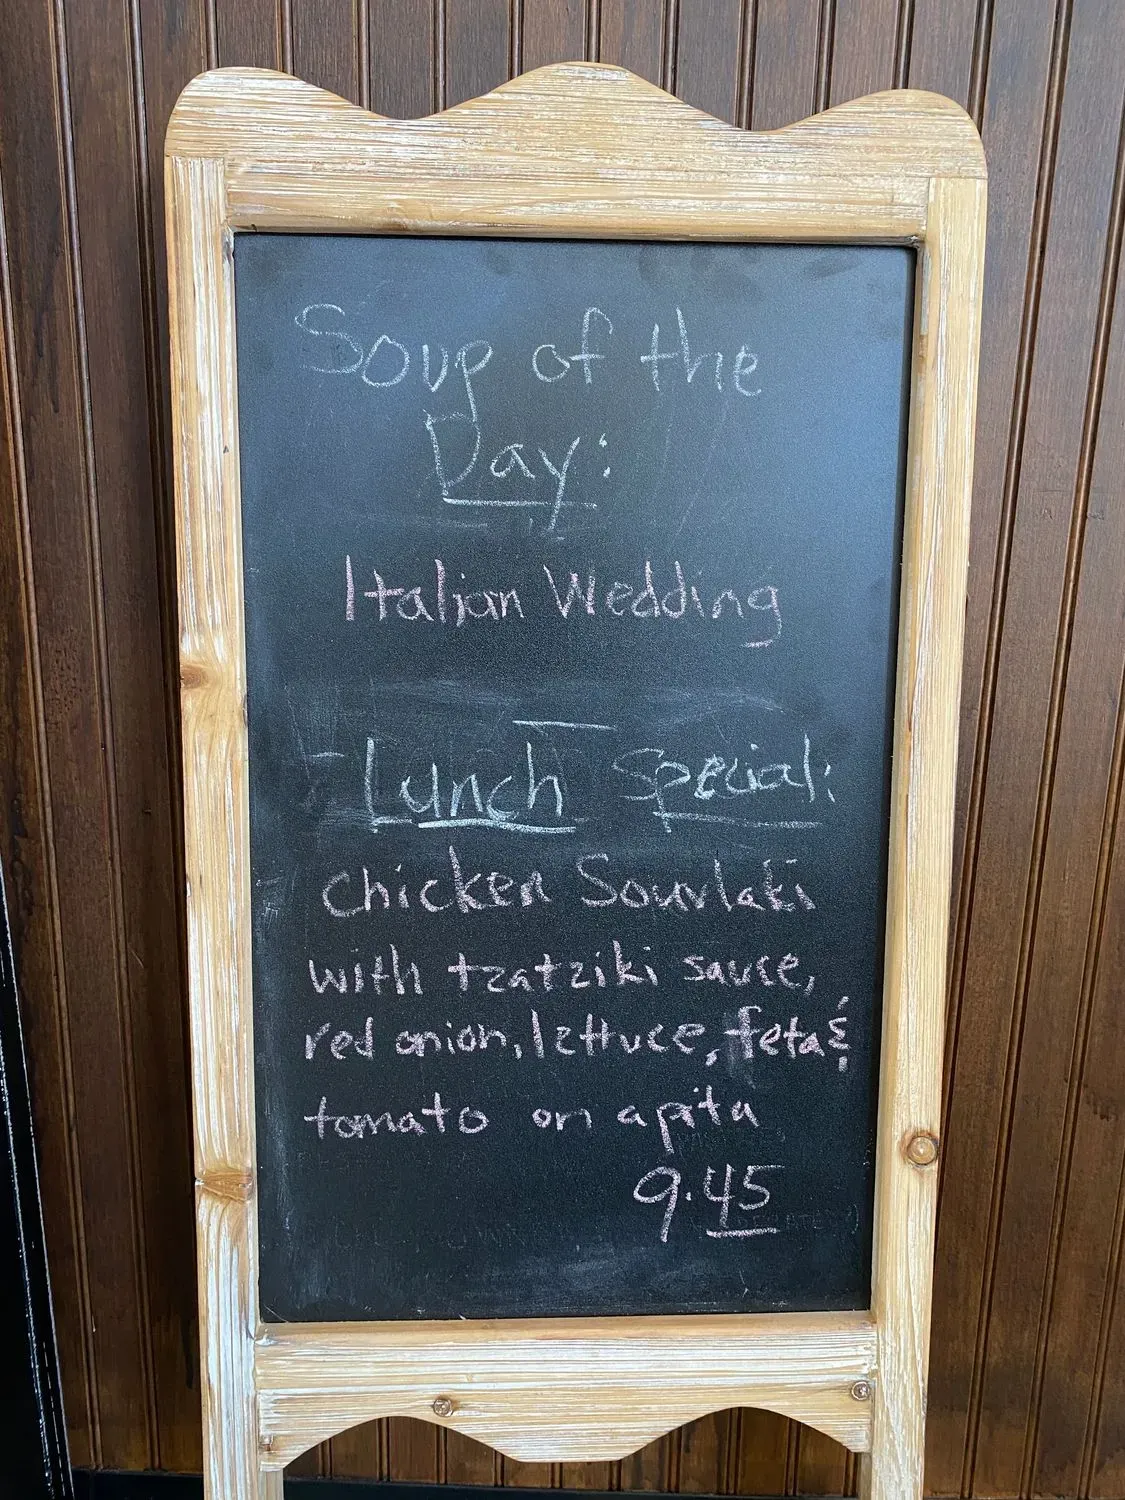 Soup of the
Day:
Italian Wedding
Lunch Special:
Chicken Souvlaki
with tzatziki sauce,
red onion, lettuce, feta &
tomato on a pita
9.45